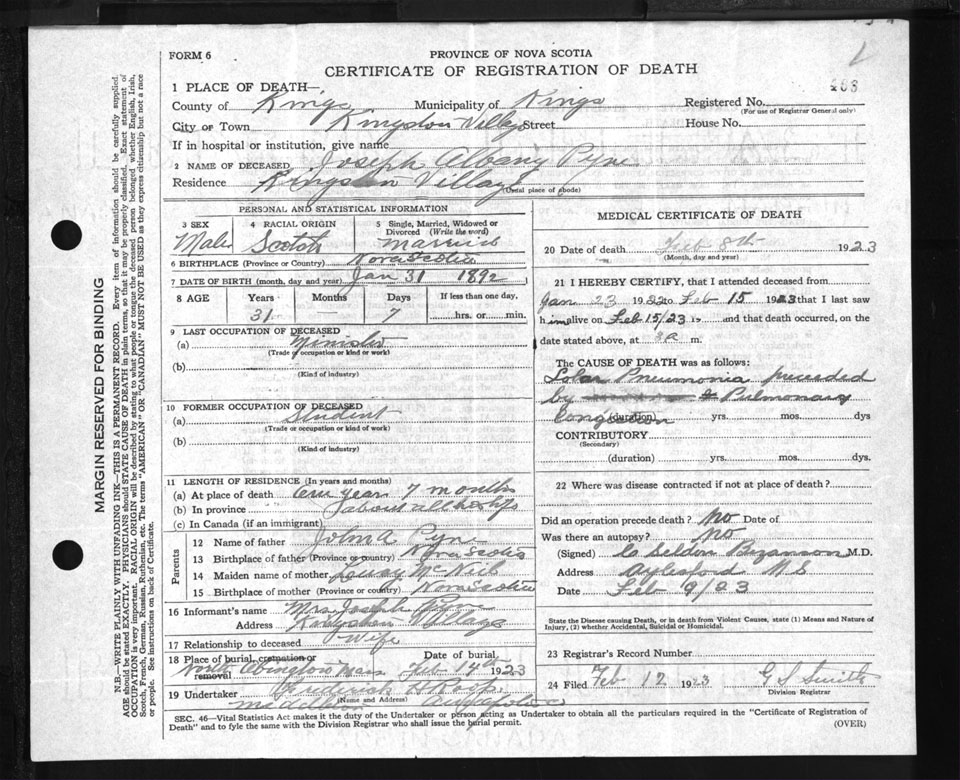 FORM 6
PROVINCE OF NOVA SCOTIA
CERTIFICATE OF REGISTRATION OF DEATH
1 PLACE OF DEATH—
County of Kings Municipality of Kings Registered No.
(For use of Registrar General only)
City or Town Kingston Village Street House No.
If in hospital or institution, give name
2 NAME OF DECEASED Joseph Albany Pyne
Residence Kingston Village
(Usual place of abode)
PERSONAL AND STATISTICAL INFORMATION
3 SEX Male
4 RACIAL ORIGIN Scotch
5 Single, Married, Widowed or Divorced (Write the word) married
6 BIRTHPLACE (Province or Country) Nova Scotia
7 DATE OF BIRTH (month, day, and year) Jan 31 1892
8 AGE Years Months Days If less than one day,
31 7 hrs. or min.
9 LAST OCCUPATION OF DECEASED
(a) Minister
(Trade or occupation or kind or work)
(b)
(Kind of industry)
10 FORMER OCCUPATION OF DECEASED
(a) Student
(Trade or occupation or kind or work)
(b)
(Kind of industry)
11 LENGTH OF RESIDENCE (In years and months)
(a) At place of death one year 7 months
(b) In province about all his life
(c) In Canada (if an immigrant)
Parents
12 Name of father John A Pyne
13 Birthplace of father (Province or country) Nova Scotia
14 Maiden name of mother McNeil
15 Birthplace of mother (Province or country) Nova Scotia
16 Informant's name Mrs Joseph Pyne
Address Kingston Village
17 Relationship to deceased Wife
18 Place of burial, cremation or removal North Abington Mass Date of burial, Feb 14th 1923
19 Undertaker Frederick
(Name and Address)
Middleton Annapolis Co
MEDICAL CERTIFICATE OF DEATH
20 Date of death Feb 8th 1923
(Month, day and year)
21 I HEREBY CERTIFY, that I attended deceased from
Jan 23 1922 to Feb 15 1923 that I last saw
him alive on Feb 15/23 and that death occurred, on the
date stated above, at 3a m.
The CAUSE OF DEATH was as follows:
Lobar Pneumonia preceded
by Pulmonary
Congestion
(duration) yrs. mos. dys
CONTRIBUTORY
(Secondary)
(duration) yrs. mos. dys.
22 Where was disease contracted if not at place of death?
Did an operation precede death? No Date of
Was there an autopsy? No
(Signed) Seldon Bezanson M.D.
Address Aylesford N S
Date Feb 9/23
State the Disease causing Death, or in death from Violent Causes, state (1) Means and Nature of Injury, (2) whether Accidental, Suicidal or Homicidal.
23 Registrar's Record Number
24 Filed Feb 12 1923 G S Smith
Division Registrar
SEC. 46—Vital Statistics Act makes it the duty of the Undertaker or person acting as Undertaker to obtain all the particulars required in the "Certificate of Registration of
Death" and to fyle the same with the Division Registrar who shall issue the burial permit.
(OVER)
MARGIN RESERVED FOR BINDING
N.B.—WRITE PLAINLY WITH UNFADING INK—THIS IS A PERMANENT RECORD. Every item of information should be carefully supplied.
AGE should be stated EXACTLY. PHYSICIANS should STATE CAUSE OF DEATH in plain terms, so that it may be properly classified. Exact statement of
OCCUPATION is very important. RACIAL ORIGIN will be described by stating to what people or tongue the deceased person belonged whether English, Irish,
Scotch, French, German, Russian, Ruthenian, etc. The terms "AMERICAN" OR "CANADIAN" MUST NOT BE USED as they express citizenship but not a race
or people. See instructions on back of Certificate.